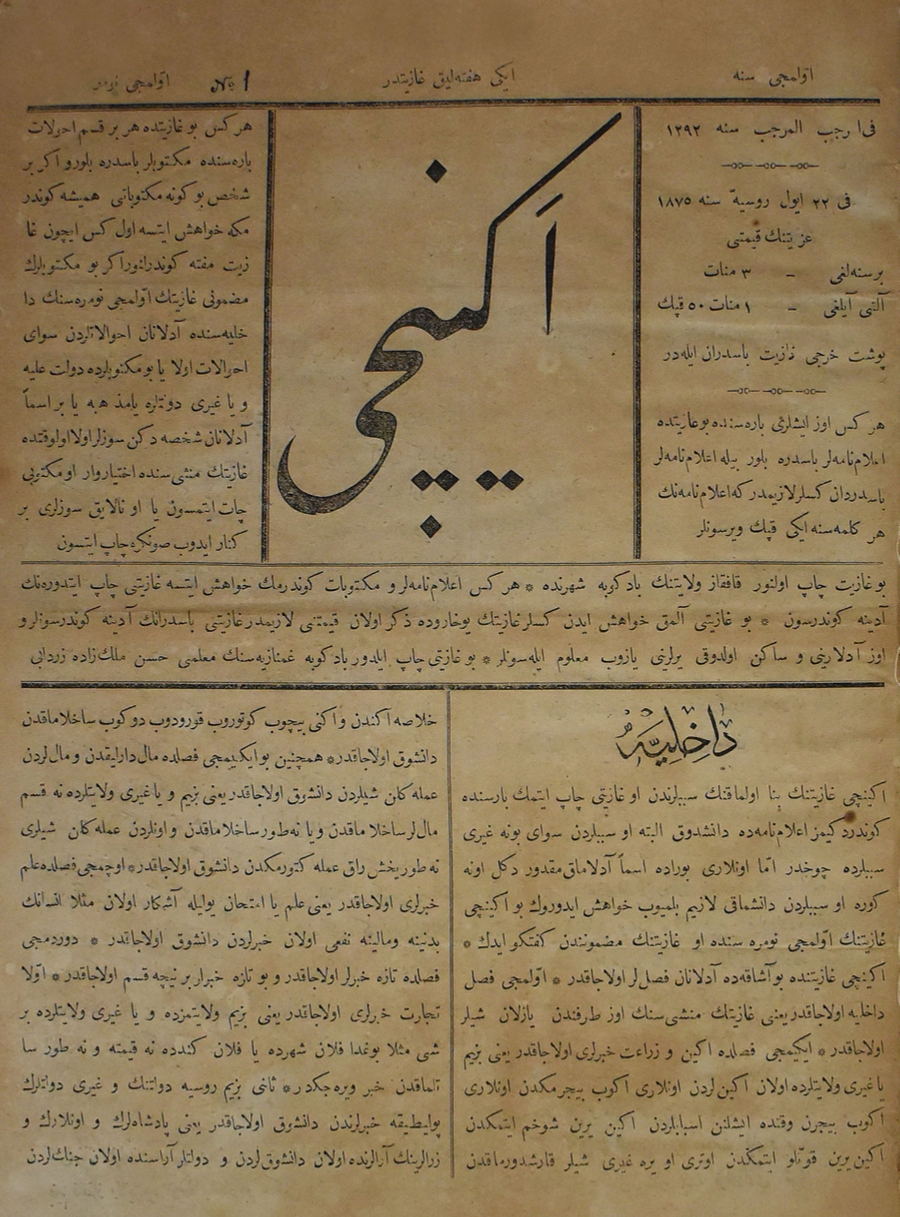 اوّلمجی سنه
ایکی هفته‌لیق غازیتدر
№ 1
اوّلمجی نومر
فی ١ رجب المرجب سنه ١٢٩٢
فی ٢٢ ایول روسیهٔ سنه ١٨٧٥
غزیتنك قیمتی
برسنه‌لغی - ٣ منات
آلتی آیلغی - ١ منات ٥٠ قپك
پوشت خرجی غازیت باسدران ایله‌در
هر کس اوز ایشلری باره‌سنده بو غازیتده
اعلام‌نامه‌لر باسدره بلور بیله اعلام‌نامه‌لر
باسدردان کسلر لازیمدر که اعلام نامه‌نك
هر کلمه‌سنه ایکی قپك ویرسونلر
اکینچی
هر کس بو غازیتده هر بر قسم احوالات
باره‌سنده مکتوبلر باسدره بلور و اکر بر
شخص بو کونه مکتوباتی همیشه کوندر
مکه خواهش ایتسه اول کس ایچون غا
زیت مفته کوندرلنور اکر بو مکتوبلرك
مضمونی غازیتك اوّلمجی نومره‌سنك دا
خلیه‌سنده آدلانان احوالاتلردن سوای
احوالات اولا یا بو مکتوبلرده دولت علیه
و یا غیری دولتلره یا مذهبه یا بر اسماً
آدلانان شخصه دکن سوزلر اولا اولوقتده
غازیتك منشی‌سنده اختیار وار او مکتوبی
چاپ ایتمسون یا او نالایق سوزلری بر
کنار ایدوب صونکره چاپ ایتسون
بو غازیت چاپ اولنور قافقاز ولایتنك بادکوبه شهرنده * هر کس اعلام‌نامه‌لر و مکتوبات کوندرمك خواهش ایتسه غازیتی چاپ ایتدوره‌نك
آدینه کوندرسون * بو غازیتی آلمق خواهش ایدن کسلر غازیتك یوخاروده ذکر اولان قیمتنی لازیمدر غازیتی باسدرانك آدینه کوندرسونلر و
اوز آدلارینی و ساکن اولدوقی یرلرینی یازوب معلوم ایله‌سونلر * بو غازیتی چاپ ایلدور بادکوبه غمنازیه‌سنك معلمی حسن ملك‌زاده زردابی
داخلیه
اکینچی غازیتنك بنا اولماقنك سببلرندن او غازیتی چاپ ایتمك بارسنده
کوندردکیمز اعلام‌نامه‌ده دانشدوق البته او سببلردن سوای بونه غیری
سببلرده چوخدر امّا اونلاری بوراده اسماً آدلاماق مقدور دکل اونه
کوره او سببلردن دانشماقی لازیم بلمیوب خواهش ایدوروك بو اکینچی
غازیتنك اوّلمجی نومره سنده او غازیتك مضمونندن کفتکو ایدك *
اکینچی غازیتنده بو آشاقه‌ده آدلانان فصل‌لر اولاجاقدر * اوّلمجی فصل
داخلیه اولاجاقدر یعنی غازیتك منشی‌سنك اوز طرفندن یازلان شیلر
اولاجاقدر * ایکیمجی فصلده اکین و زراعت خبرلری اولاجاقدر یعنی بزیم
یا غیری ولایتلرده اولان اکین‌لردن اونلاری اکوب بیجرمکدن اونلاری
اکوب بیجرن وقتده ایشلنن اسبابلردن اکین یرین شوخم ایتمکدن
اکین یرین قوتلو ایتمکدن اوتری او یره غیری شیلر قارشدورماقدن
خلاصه اکندن و اکنی بیچوب کوتوروب قورودوب دوکوب ساخلاماقدن
دانشوق اولاجاقدر * همچنین بو ایکیمجی فصلده مال‌دارلیقدن و مال‌لردن
عمله کلن شیلردن دانشوق اولاجاقدر یعنی بزیم و یا غیری ولایتلرده نه قسم
مال‌لر ساخلاماقدن و یا نه‌طور ساخلاماقدن و اونلردن عمله کلن شیلری
نه طور یخشی‌راق عمله کتورمکدن دانشوق اولاجاقدر * اوچمجی فصلده علم
خبرلری اولاجاقدر یعنی علم یا امتحان یوایله آشکار اولان مثلا انسانك
بدنینه و مالینه نفعی اولان خبرلردن دانشوق اولاجاقدر * دوردمجی
فصلده تازه خبرلر اولاجاقدر و بو تازه خبرلر بر نیچه قسم اولاجاقدر * اوّلا
تجارت خبرلری اولاجاقدر یعنی بزیم ولایتمزده و یا غیری ولایتلرده بر
شی مثلا بوغدا فلان شهرده یا فلان کندده نه قیمته و نه طور سا
تلماقدن خبر ویره‌جکدر * ثانی بزیم روسیه دولتنك و غیری دولتلرك
پولیطیقه خبرلرندن دانشوق اولاجاقدر یعنی پادشاه‌لرك و اونلارك و
زرالرینك آرالرنده اولان دانشوق‌لردن و دولتلر آراسنده اولان جنك‌لردن